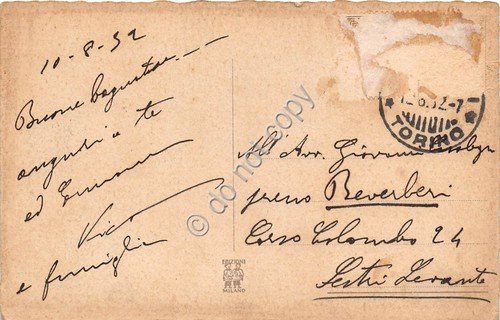 10-8-32
Buone
auguri a te
ed
e famiglia
12.8.32-7
TORINO
All' Avv. Giovanni
presso Beverberi
Corso Colombo 24
Sestri Levante
EDIZIONI
MILANO
© do not copy